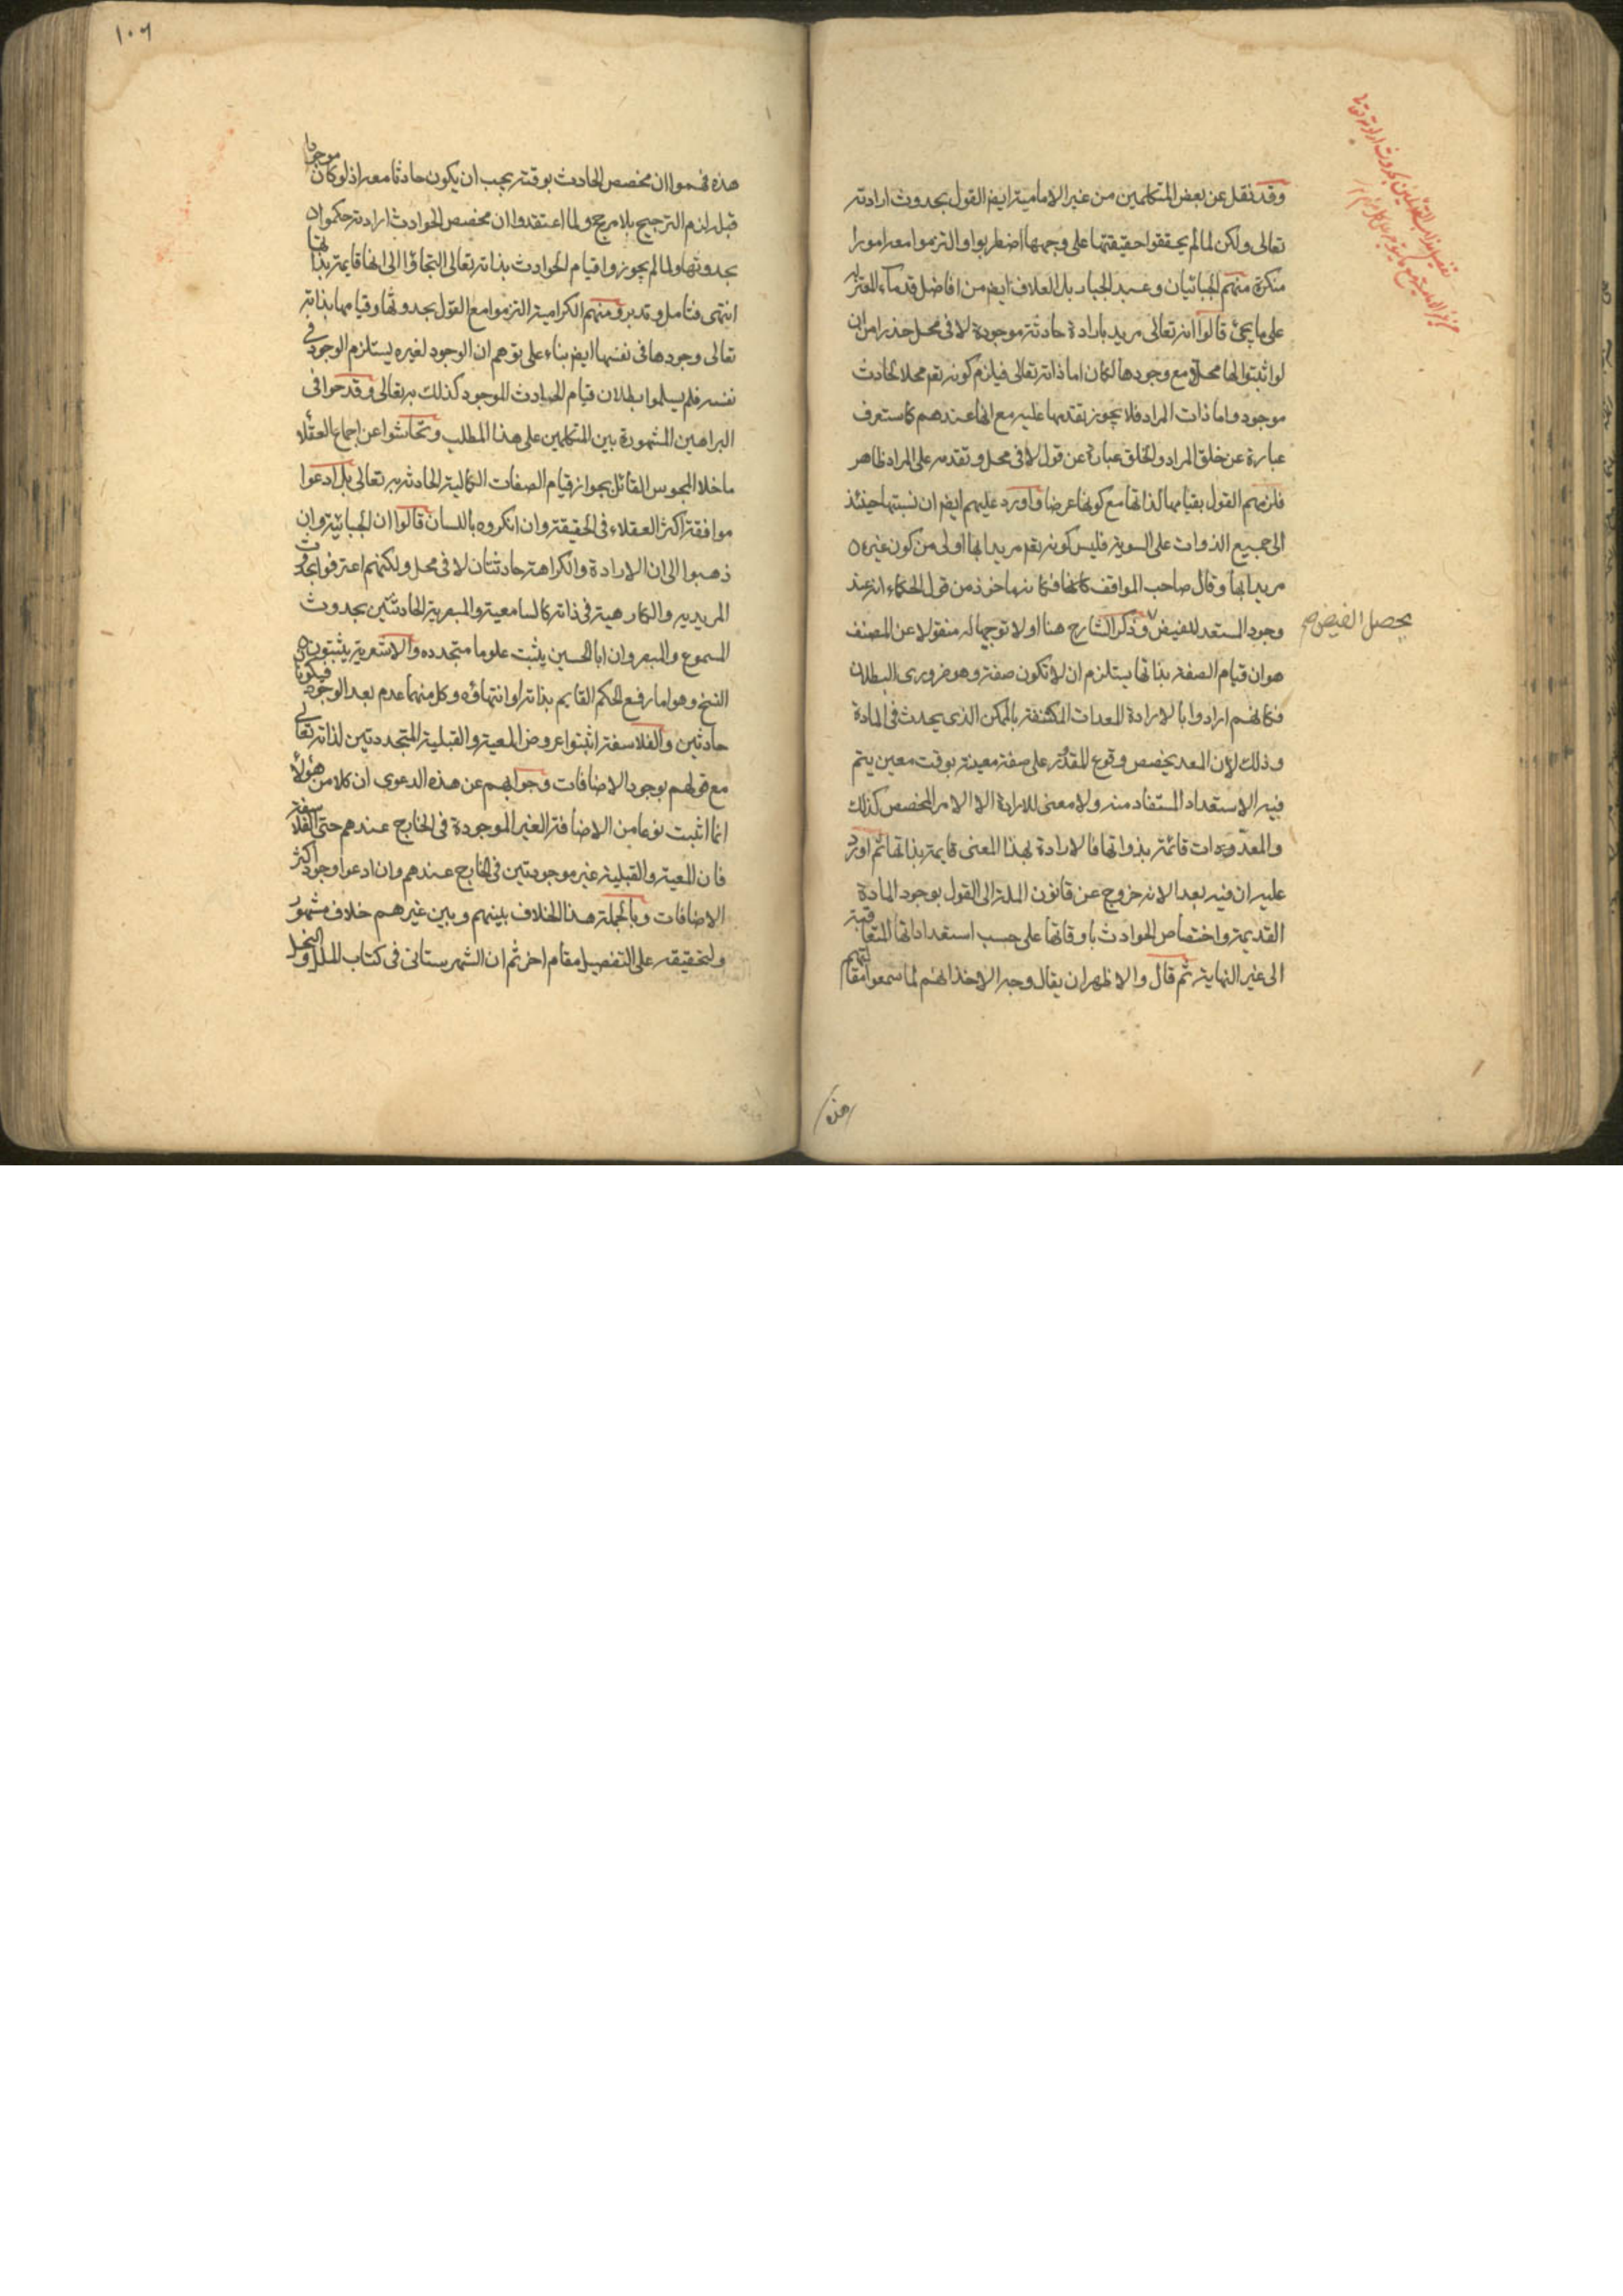 وقد نقل عن بعض المتكلمين من غير الامامية ايضا القول بحدوث ارادته
تعالى ولكن لما لم يحققوا حقيقتها على وجهها اضطربوا والتزموا معه امورا
منكرة منهم الجبائيان وعبد الجبار بل العلاف ايضا من افاضل قدماء المعتزلة
على ما يجئ قالوا انه تعالى مريد بارادة حادثة موجودة لا في محل حذرا من انه
لو اثبتوا لها محلا مع وجودها لكان اما ذاته تعالى فيلزم كونه تع محلا لحادث
موجود واما ذات المراد فلا يجوز تقدمها عليه مع انها عندهم كما ستعرف
عبارة عن خلق المراد والخلق عبارة عن قول لا في محل وتقدمه على المراد ظاهر
فلزمهم القول بقيامها لذاتها مع كونها عرضا واورد عليهم ايضا ان نسبتها حينئذ
الى جميع الذوات على السوية فليس كونه تع مريدا بها اولى من كون غيره
مريدا بها وقال صاحب المواقف كانها فكانه ماخوذ من قول الحكماء انه عند
وجود المستعد للفيض وذكر الشارح هنا اولا توجيها له منقولا عن المصنف
يحصل الفيض صح
هو ان قيام الصفة بذاتها يستلزم ان لا تكون صفة وهو ضروري البطلان
فكانهم ارادوا بالارادة المعدات المكتنفة بالممكن الذي يحدث في المادة
وذلك لان المعد يخصص وقوع المقدر على صفة معينة بوقت معين يتم
فيه الاستعداد المستفاد منه ولا معنى للارادة الا الامر المخصص كذلك
والمعدات قائمة بذواتها فالارادة بهذا المعنى قايمة بذاتها ثم اورد
عليه ان فيه بعدا لانه خروج عن قانون الملة الى القول بوجود المادة
القديمة واختصاص الحوادث باوقاتها على حسب استعداداتها المتعاقبة
الى غير النهاية ثم قال والاظهر ان يقال وجه الاخذ انهم لما سمعوا مقالتهم
هذه
١٠٦
هذه فهموا ان مخصص الحادث بوقته يجب ان يكون حادثا معه اذ لو كان موجودا
قبله لزم الترجيح بلا مرجح ولما اعتقدوا ان مخصص الحوادث ارادته حكموا
بحدوثها ولما لم يجوزوا قيام الحوادث بذاته تعالى التجاؤا الى انها قايمة بذاتها
انتهى فتامل وتدبر ومنهم الكرامية التزموا مع القول بحدوثها وقيامها بذاته
تعالى وجودها في نفسها ايضا بناء على توهم ان الوجود لغيره يستلزم الوجود في
نفسه فلم يسلموا بطلان قيام الحادث الموجود كذلك به تعالى وقدحوا في
البراهين المشهورة بين المتكلمين على هذا المطلب وتحاشوا عن اجماع العقلاء
ما خلا المجوس القائل بجواز قيام الصفات الكمالية الحادثة به تعالى بل ادعوا
موافقة اكثر العقلاء في الحقيقة وان انكروه باللسان قالوا ان الجبائية وان
ذهبوا الى ان الارادة والكراهة حادثتان لا في محل ولكنهم اعترفوا بحدوث
المريدية والكارهية في ذاته كالسامعية والمبصرية الحادثتين بحدوث
المسموع والمبصر وان ابا الحسين يثبت علوما متجددة والاشعرية يثبتون
النسخ وهو اما رفع الحكم القايم بذاته او انتهاؤه وكل منهما عدم بعد الوجود فيكونا
حادثين والفلاسفة اثبتوا عروض المعية والقبلية المتجددتين لذاته تعالى
مع قولهم بوجود الاضافات وجوابهم عن هذه الدعوى ان كلا من هؤلاء
انما اثبت نوعا من الاضافة الغير الموجودة في الخارج عندهم حتى الفلاسفة
فان المعية والقبلية غير موجودتين في الخارج عندهم وان ادعوا وجود اكثر
الاضافات وبالجملة هذا الخلاف بينهم وبين غيرهم خلاف مشهور
ولتحقيقه على التفصيل مقام اخر ثم ان الشهرستاني في كتاب الملل والنحل